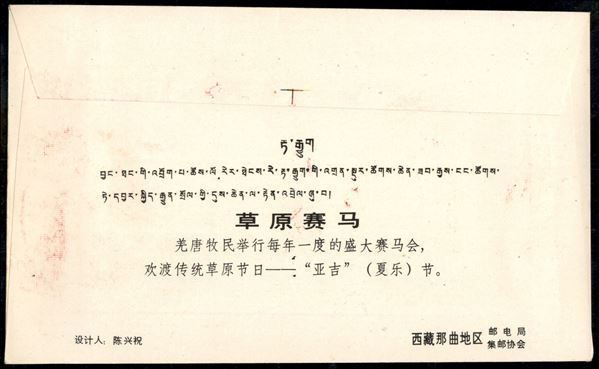 རྟ་རྒྱུག
བྱང་ཐང་གི་འབྲོག་པ་ཚོས་ལོ་རེར་ཐེངས་རེ་རྟ་རྒྱུག་གི་འགྲན་སྡུར་ཚོགས་ཆེན་ཟབ་རྒྱས་ངང་ཚོགས་
ཏེ་དབྱར་སྐྱིད་རྒྱུན་སྲོལ་གྱི་དུས་ཆེན་ལ་རྟེན་འབྲེལ་ཞུ་བ།
草原赛马
羌唐牧民举行每年一度的盛大赛马会，
欢渡传统草原节日——“亚吉”（夏乐）节。
设计人：陈兴祝
西藏那曲地区 邮电局
集邮协会